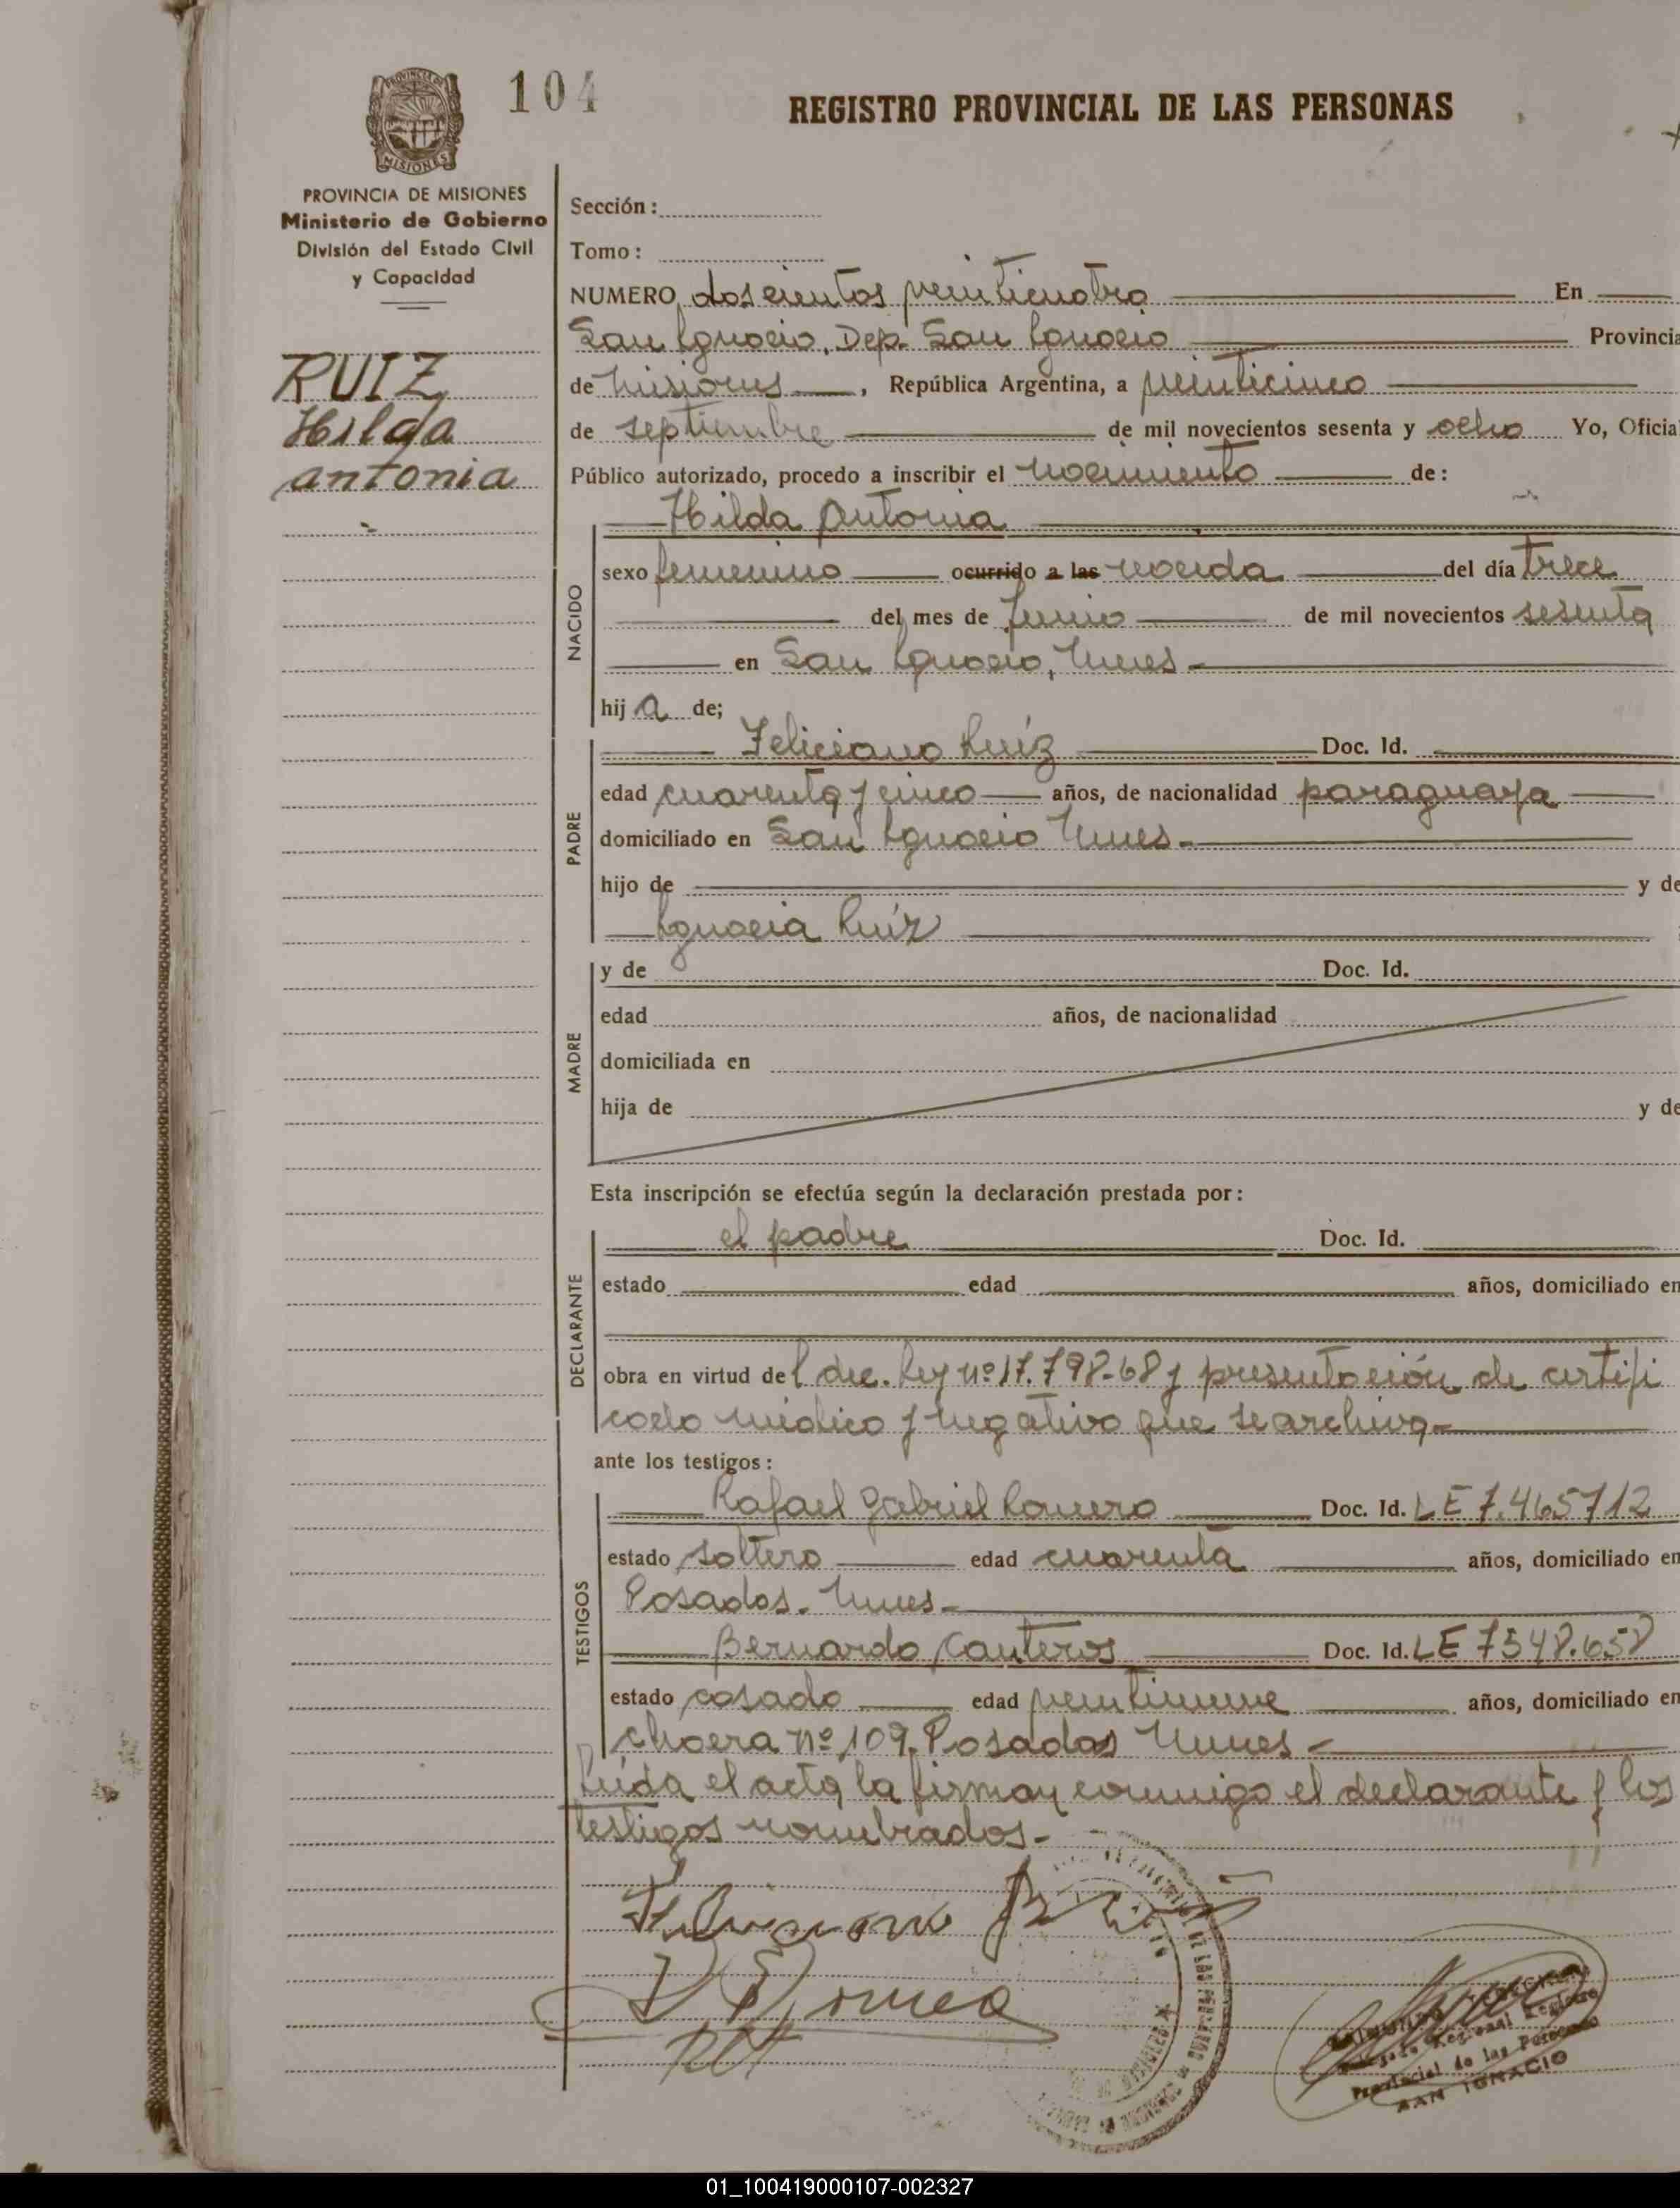 104
REGISTRO PROVINCIAL DE LAS PERSONAS
PROVINCIA DE
MISIONES
PROVINCIA DE MISIONES
Ministerio de Gobierno
División del Estado Civil
y Capacidad
RUIZ
Hilda
antonia
Sección:
Tomo:
NUMERO doscientos veinticuatro En
San Ignacio, Dep. San Ignacio Provincia
de Misiones, República Argentina, a veinticinco
de septiembre de mil novecientos sesenta y ocho Yo, Oficial
Público autorizado, procedo a inscribir el nacimiento de:
Hilda Antonia
NACIDO
sexo femenino ocurrido a las nacida del día trece
del mes de Junio de mil novecientos sesenta
en San Ignacio, Mnes -
hij a de;
PADRE
Feliciano Ruíz Doc. Id.
edad cuarenta y cinco años, de nacionalidad paraguaya
domiciliado en San Ignacio Mnes. -
hijo de y de
Ignacia Ruíz
MADRE
y de Doc. Id.
edad años, de nacionalidad
domiciliada en
hija de y de
Esta inscripción se efectúa según la declaración prestada por:
DECLARANTE
el padre Doc. Id.
estado edad años, domiciliado en
obra en virtud del dec. Ley nº 17.798-68 y presentación de certifi
cado médico y negativo que se archiva -
ante los testigos:
TESTIGOS
Rafael Gabriel Romero Doc. Id. LE 7.465712
estado soltero edad cuarenta años, domiciliado en
Posadas. Mnes -
Bernardo Canteros Doc. Id. LE 7548.658
estado casado edad veintinueve años, domiciliado en
chacra nº 109. Posadas Mnes -
Leída el acta, la firman conmigo el declarante y los
testigos nombrados. -
Delegado Regional Registro
Provincial de las Personas
SAN IGNACIO
01_100419000107-002327